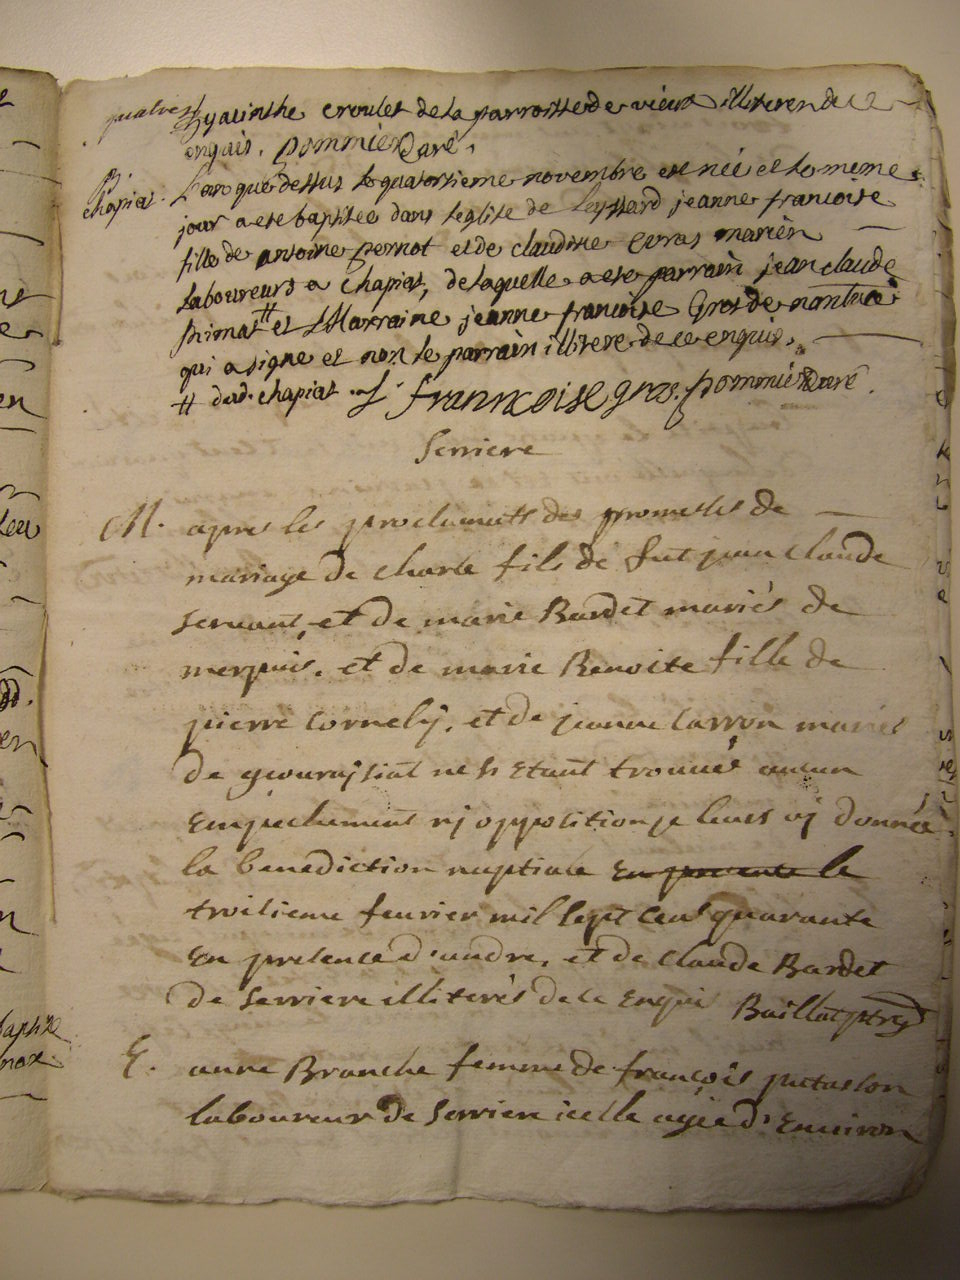 hyacinthe croulet de la parroisse de vieux illiteren de ce
enquis. pommier curé.
B.
chapiat. L'an que dessus le quatorsieme novembre est née et le meme
jour a ete baptisée dans l'eglise de leyssard jeanne francoise
fille de antoine pernot et de claudine gras mariés
laboureurs a chapiat, de laquelle a ete parrain jean claude
# et Marraine jeanne francoise Gros de nantua
qui a signe et non le parrain illitere de ce enquis.
# dud. chapiat. f francoise gros. pommier curé.
Serriere
M. apres les proclamats des promesses de
mariage de charle fils de fut jean claude
servant, et de marie Bardet mariés de
merpuis. et de marie Benoite fille de
pierre cornely. et de jeanne carron mariés
de ne si etant trouvé aucun
empechement ny opposition je leurs ay donnée
la benediction nuptiale le
troisieme fevrier mil sept cent quarante
en presence d'andre, et de claude Bardet
de serriere illiterés de ce enqui Baillat
E. anne Branche femme de françois putasson
laboureur de serriere icelle agée d'environ